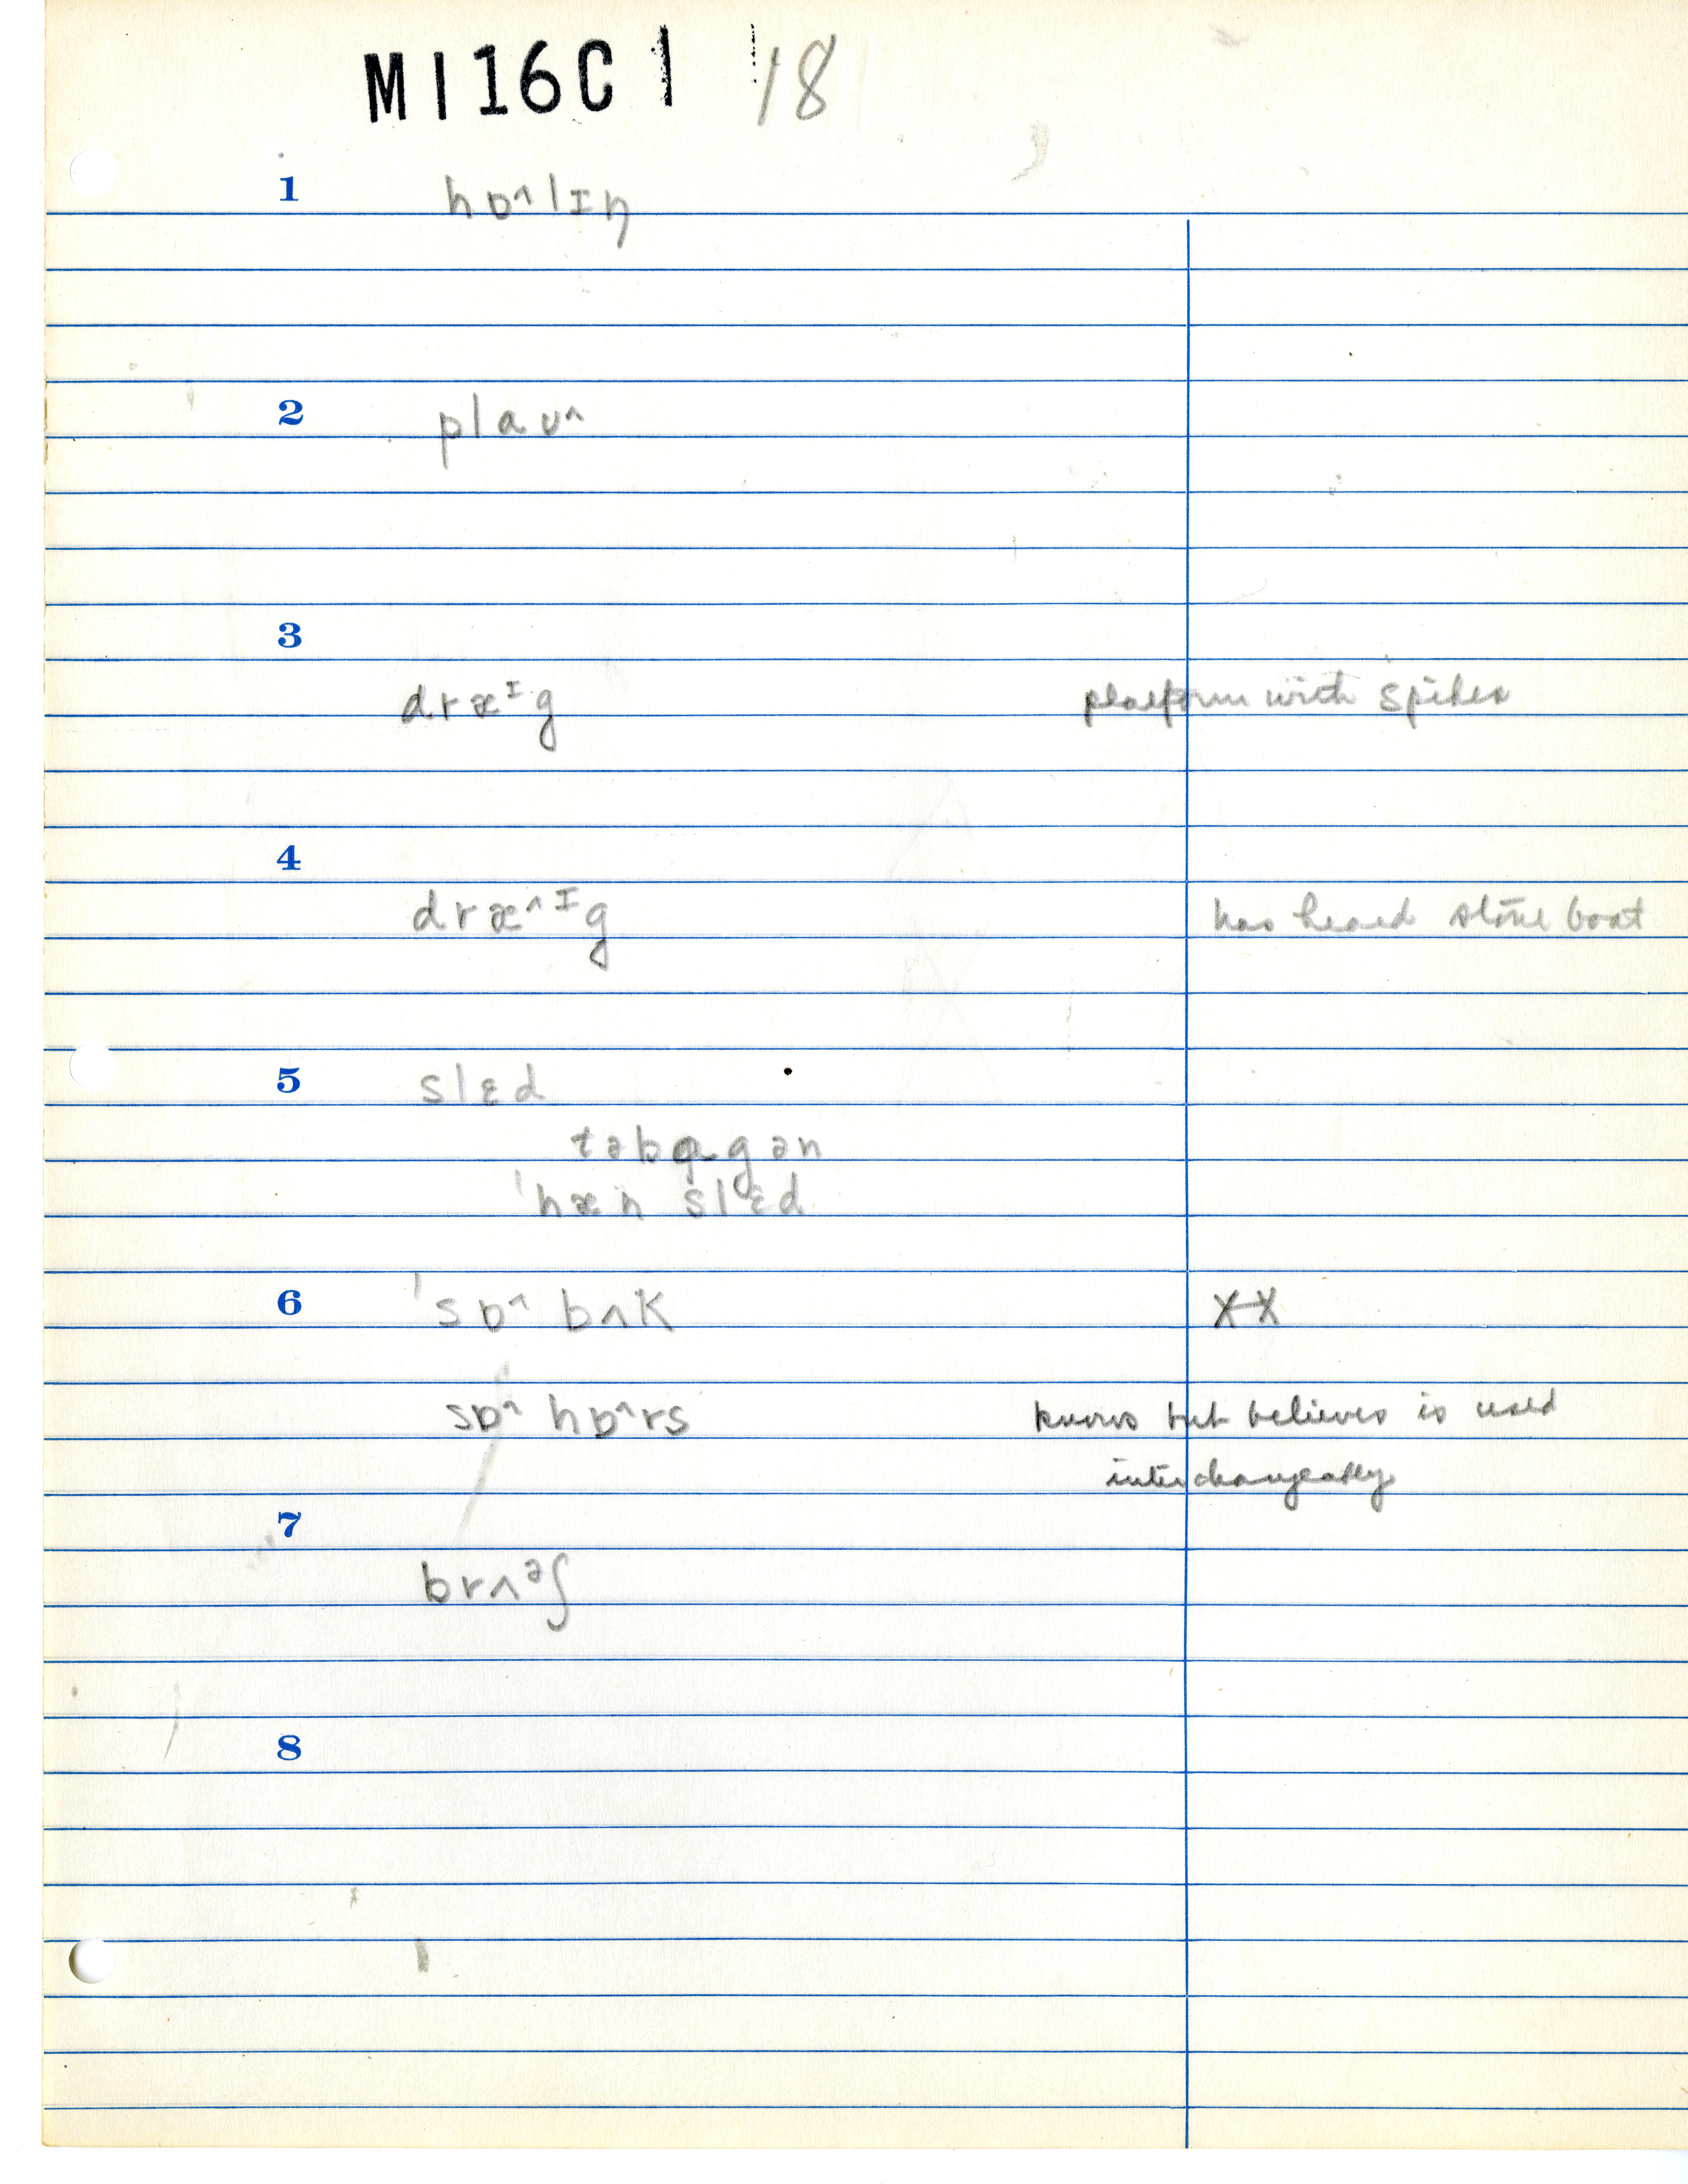 MI16C1 18
1 hɒ^lɪŋ
2 plaʊ^
3
dræᴵg platform with spikes
4
dræ^ᴵg has heard stone boat
5 slɛd
təbɑgən
'hæn slɛd
6 'sɒ^ bʌk XX
sɒ^ hɒ^rs knows but believes is used
interchangeably
7
brʌᵊʃ
8